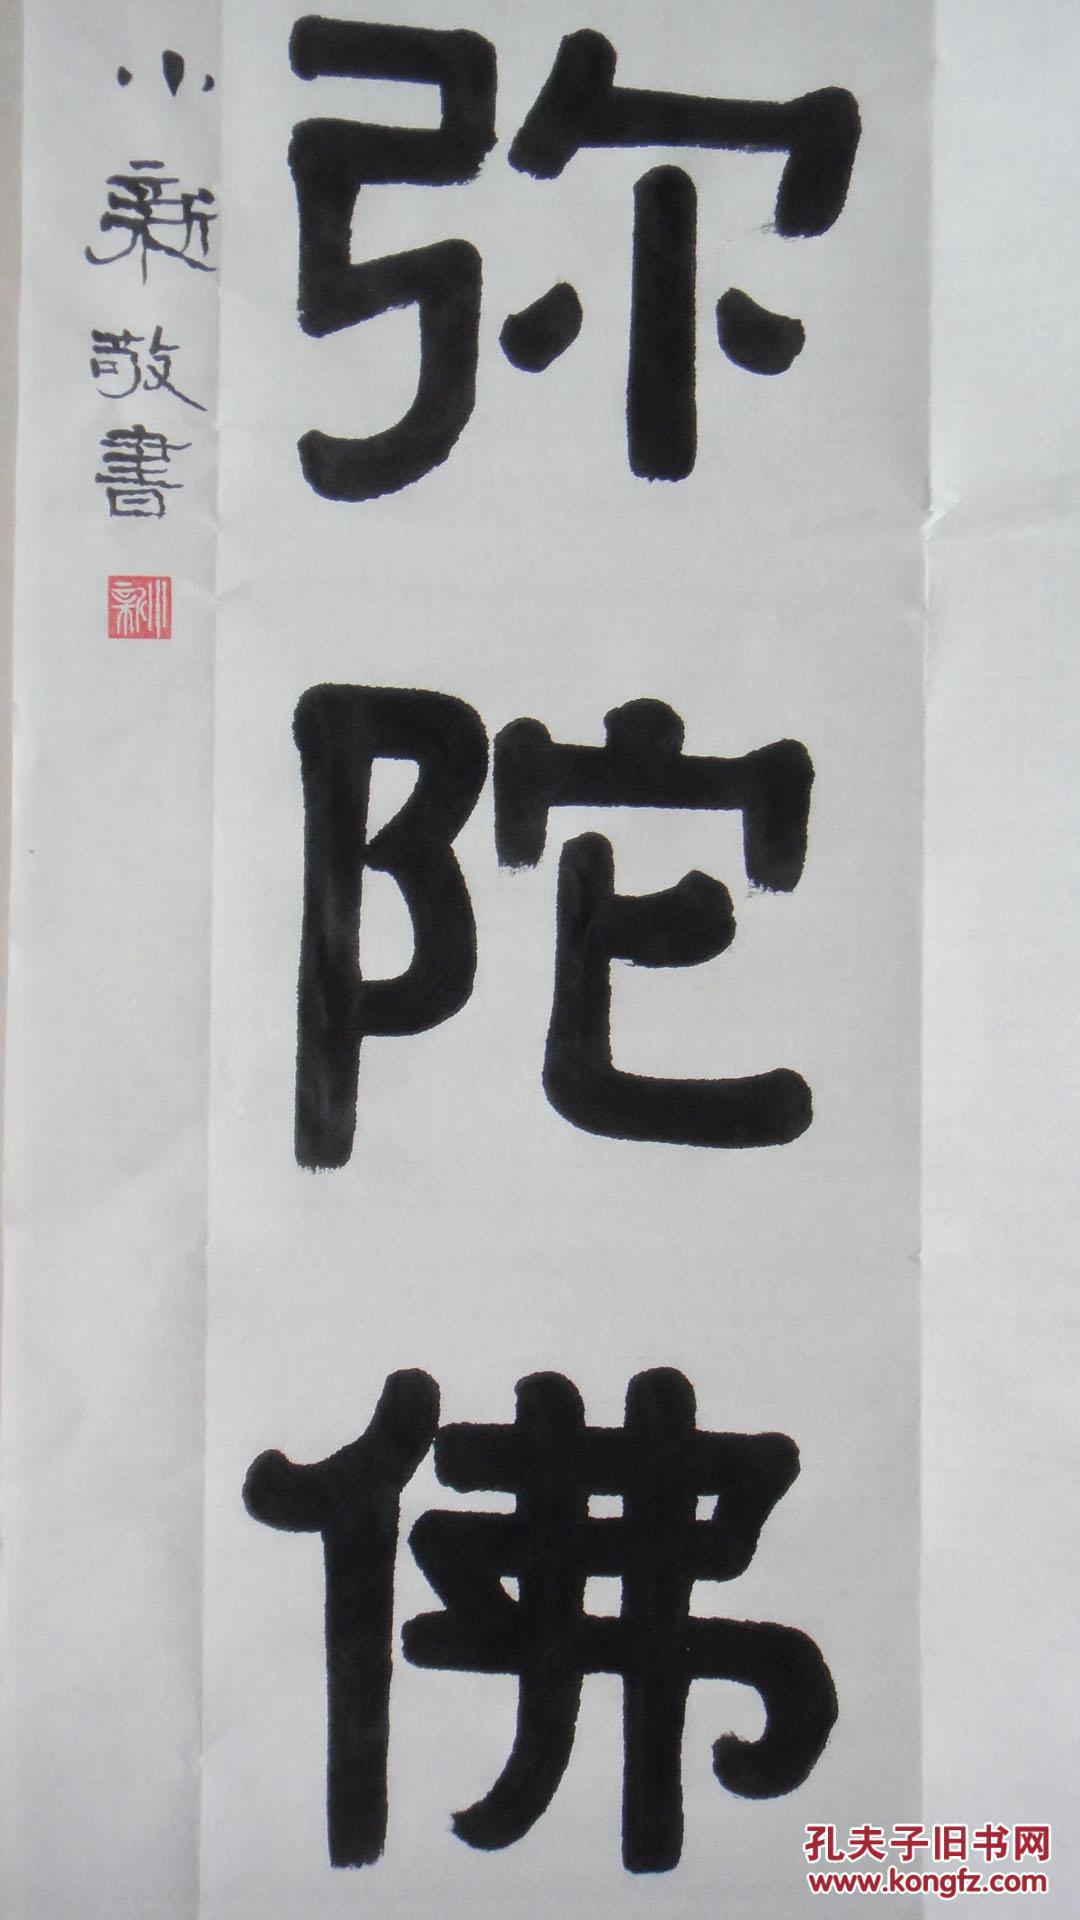 弥陀佛
小新敬書
小新
孔夫子旧书网
www.kongfz.com